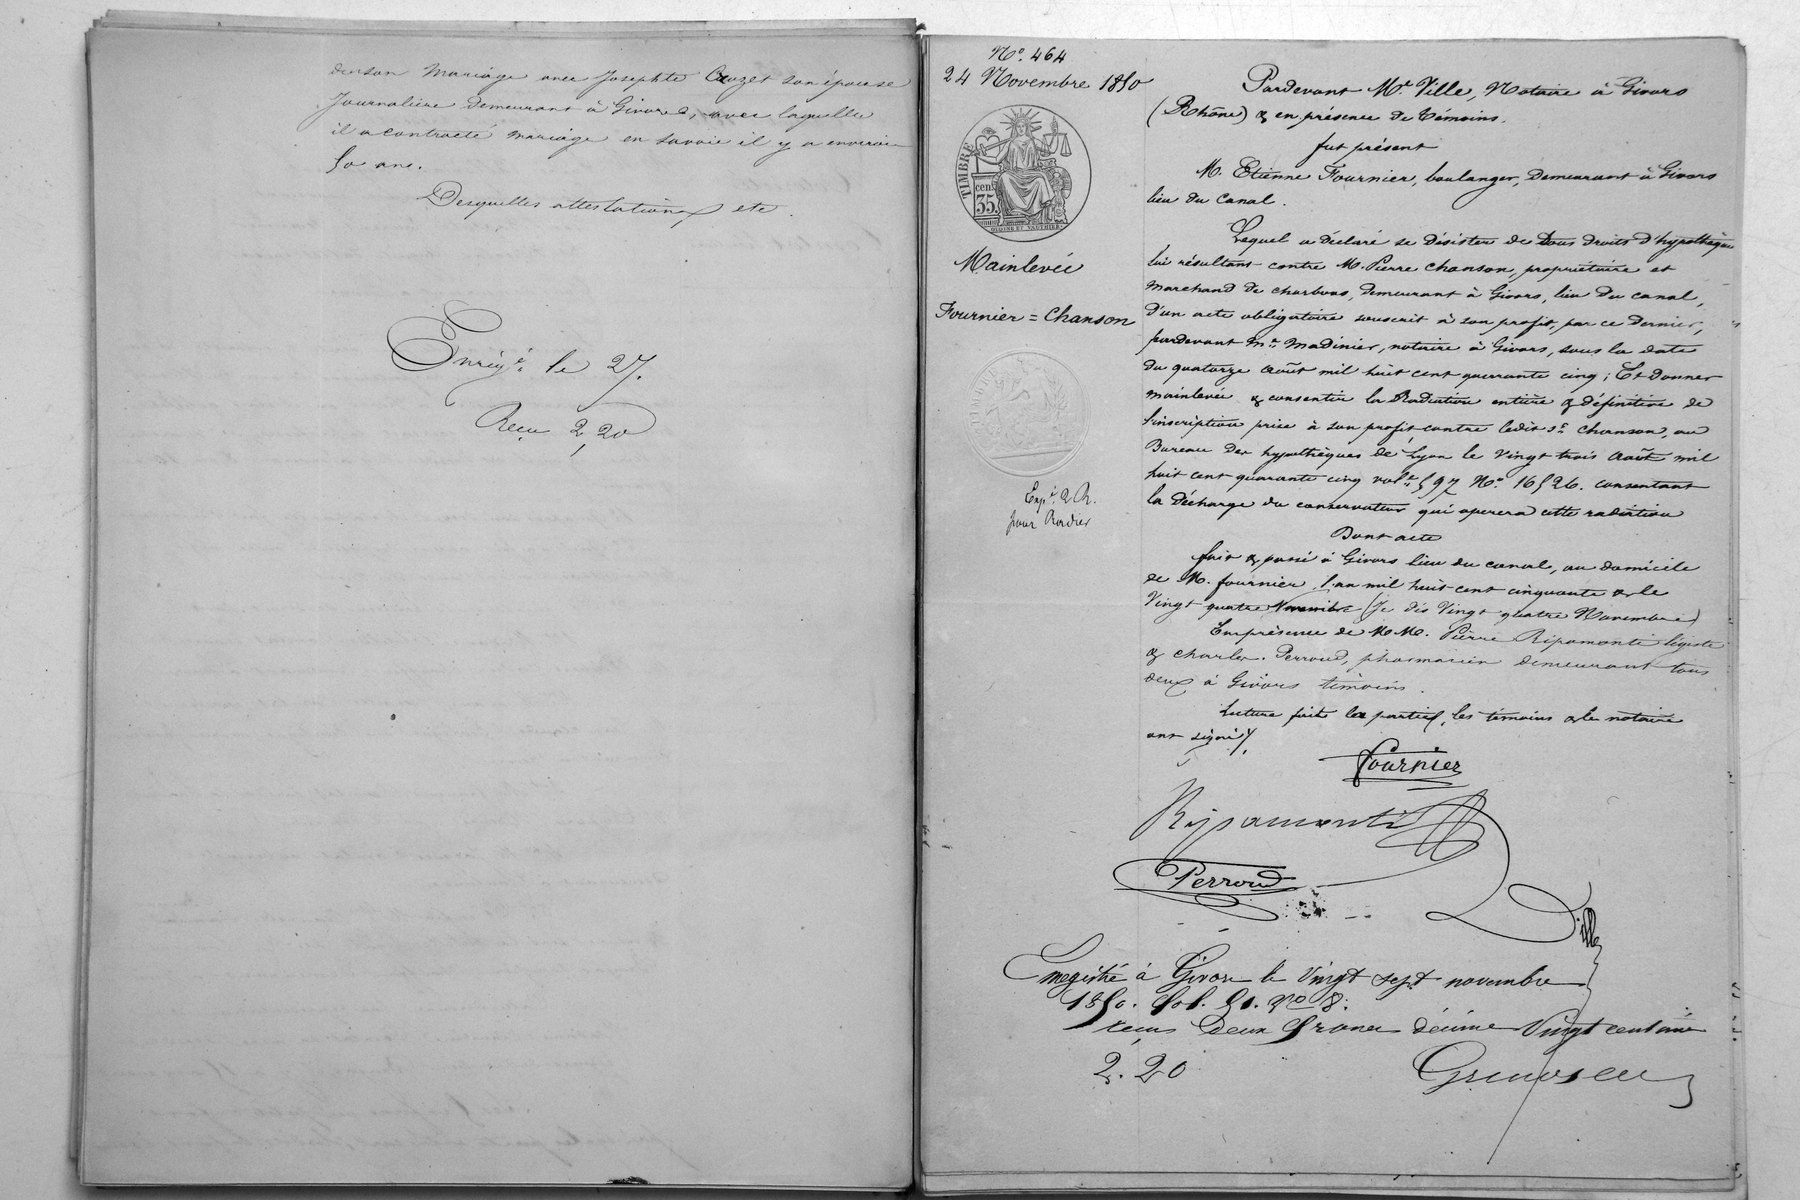 de son mariage avec Josephte Crozet son épouse
Journalière demeurant à Givors, avec laquelle
il a contracté mariage en Savoie il y a environ
50 ans.
Desquelles attestations etc.
Enregé le 27.
Reçu 2,20
No. 464
24 Novembre 1850
TIMBRE
cent
35
Mainlevée
Fournier = Chanson
Exp.é 2 R.
pour Radier
Pardevant Me. Ville, Notaire à Givors
(Rhône) & en présence de témoins.
fut présent
M. Etienne Fournier, boulanger, demeurant à Givors
lieu du Canal.
Lequel a déclaré se désister de tous droits d'hypothèque
lui résultant contre M. Pierre Chanson, propriétaire et
marchand de charbons, demeurant à Givors, lieu du canal,
d'un acte obligatoire souscrit à son profit, par ce dernier,
pardevant Me. Madinier, notaire à Givors, sous la date
du quatorze août mil huit cent quarrante cinq; Et donner
mainlevée & consentir la Radiation entière & définitive de
l'inscription prise à son profit contre ledit sr. Chanson, au
Bureau des hypothèques de Lyon le vingt trois août mil
huit cent quarante cinq vol.e 597 No. 16526. consentant
la décharge du conservateur qui operera cette radiation
Dont acte
fait & passé à Givors lieu du canal, au domicile
de M. fournier, l'an mil huit cent cinquante & le
Vingt quatre Novembre (Je dis Vingt quatre Novembre)
En présence de MM. Pierre Ripamonti légiste
& Charles Perroud, pharmacien demeurant tous
deux à Givors témoins.
Lecture faite les parties, les témoins & le notaire
ont signé.
Fournier
Ripamonti
Perroud
Ville
Enregistré à Givors le Vingt sept novembre
1850. fol. 50. Vo. 8.
reçu deux francs décime Vingt centimes
2. 20